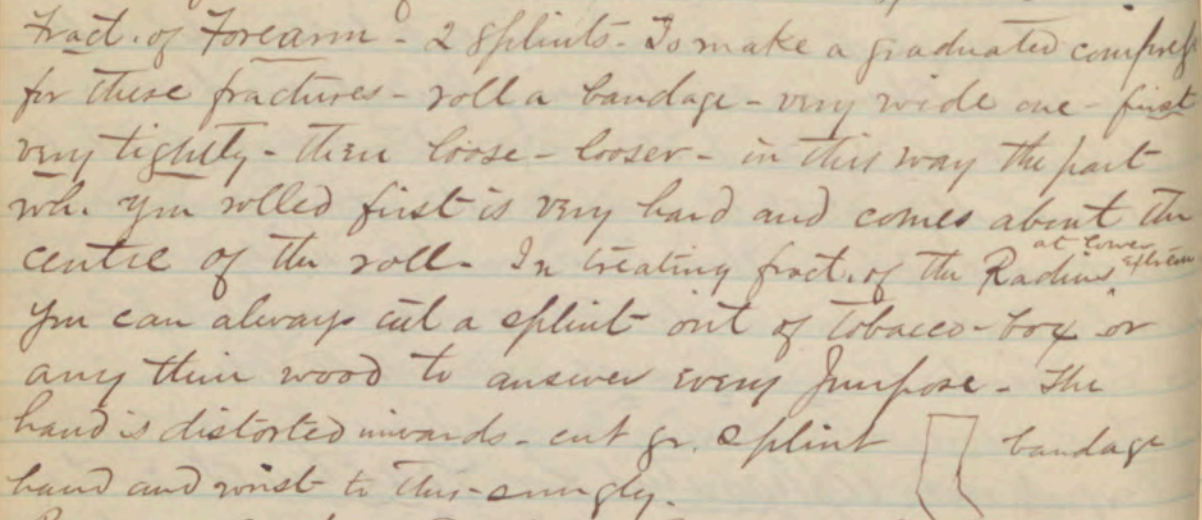 Fract. of Forearm - 2 Splints - To make a graduated compress
for these fractures - roll a bandage - very wide one - first
very tightly - then loose - looser - in this way the part
wh. you rolled first is very hard and comes about the
centre of the roll - In treating fract. of the Radius at lower extrem
you can always cut a splint out of tobacco-box or
any thin wood to answer every purpose - The
hand is distorted inwards - cut yr. splint bandage
hand and wrist to this - snugly.